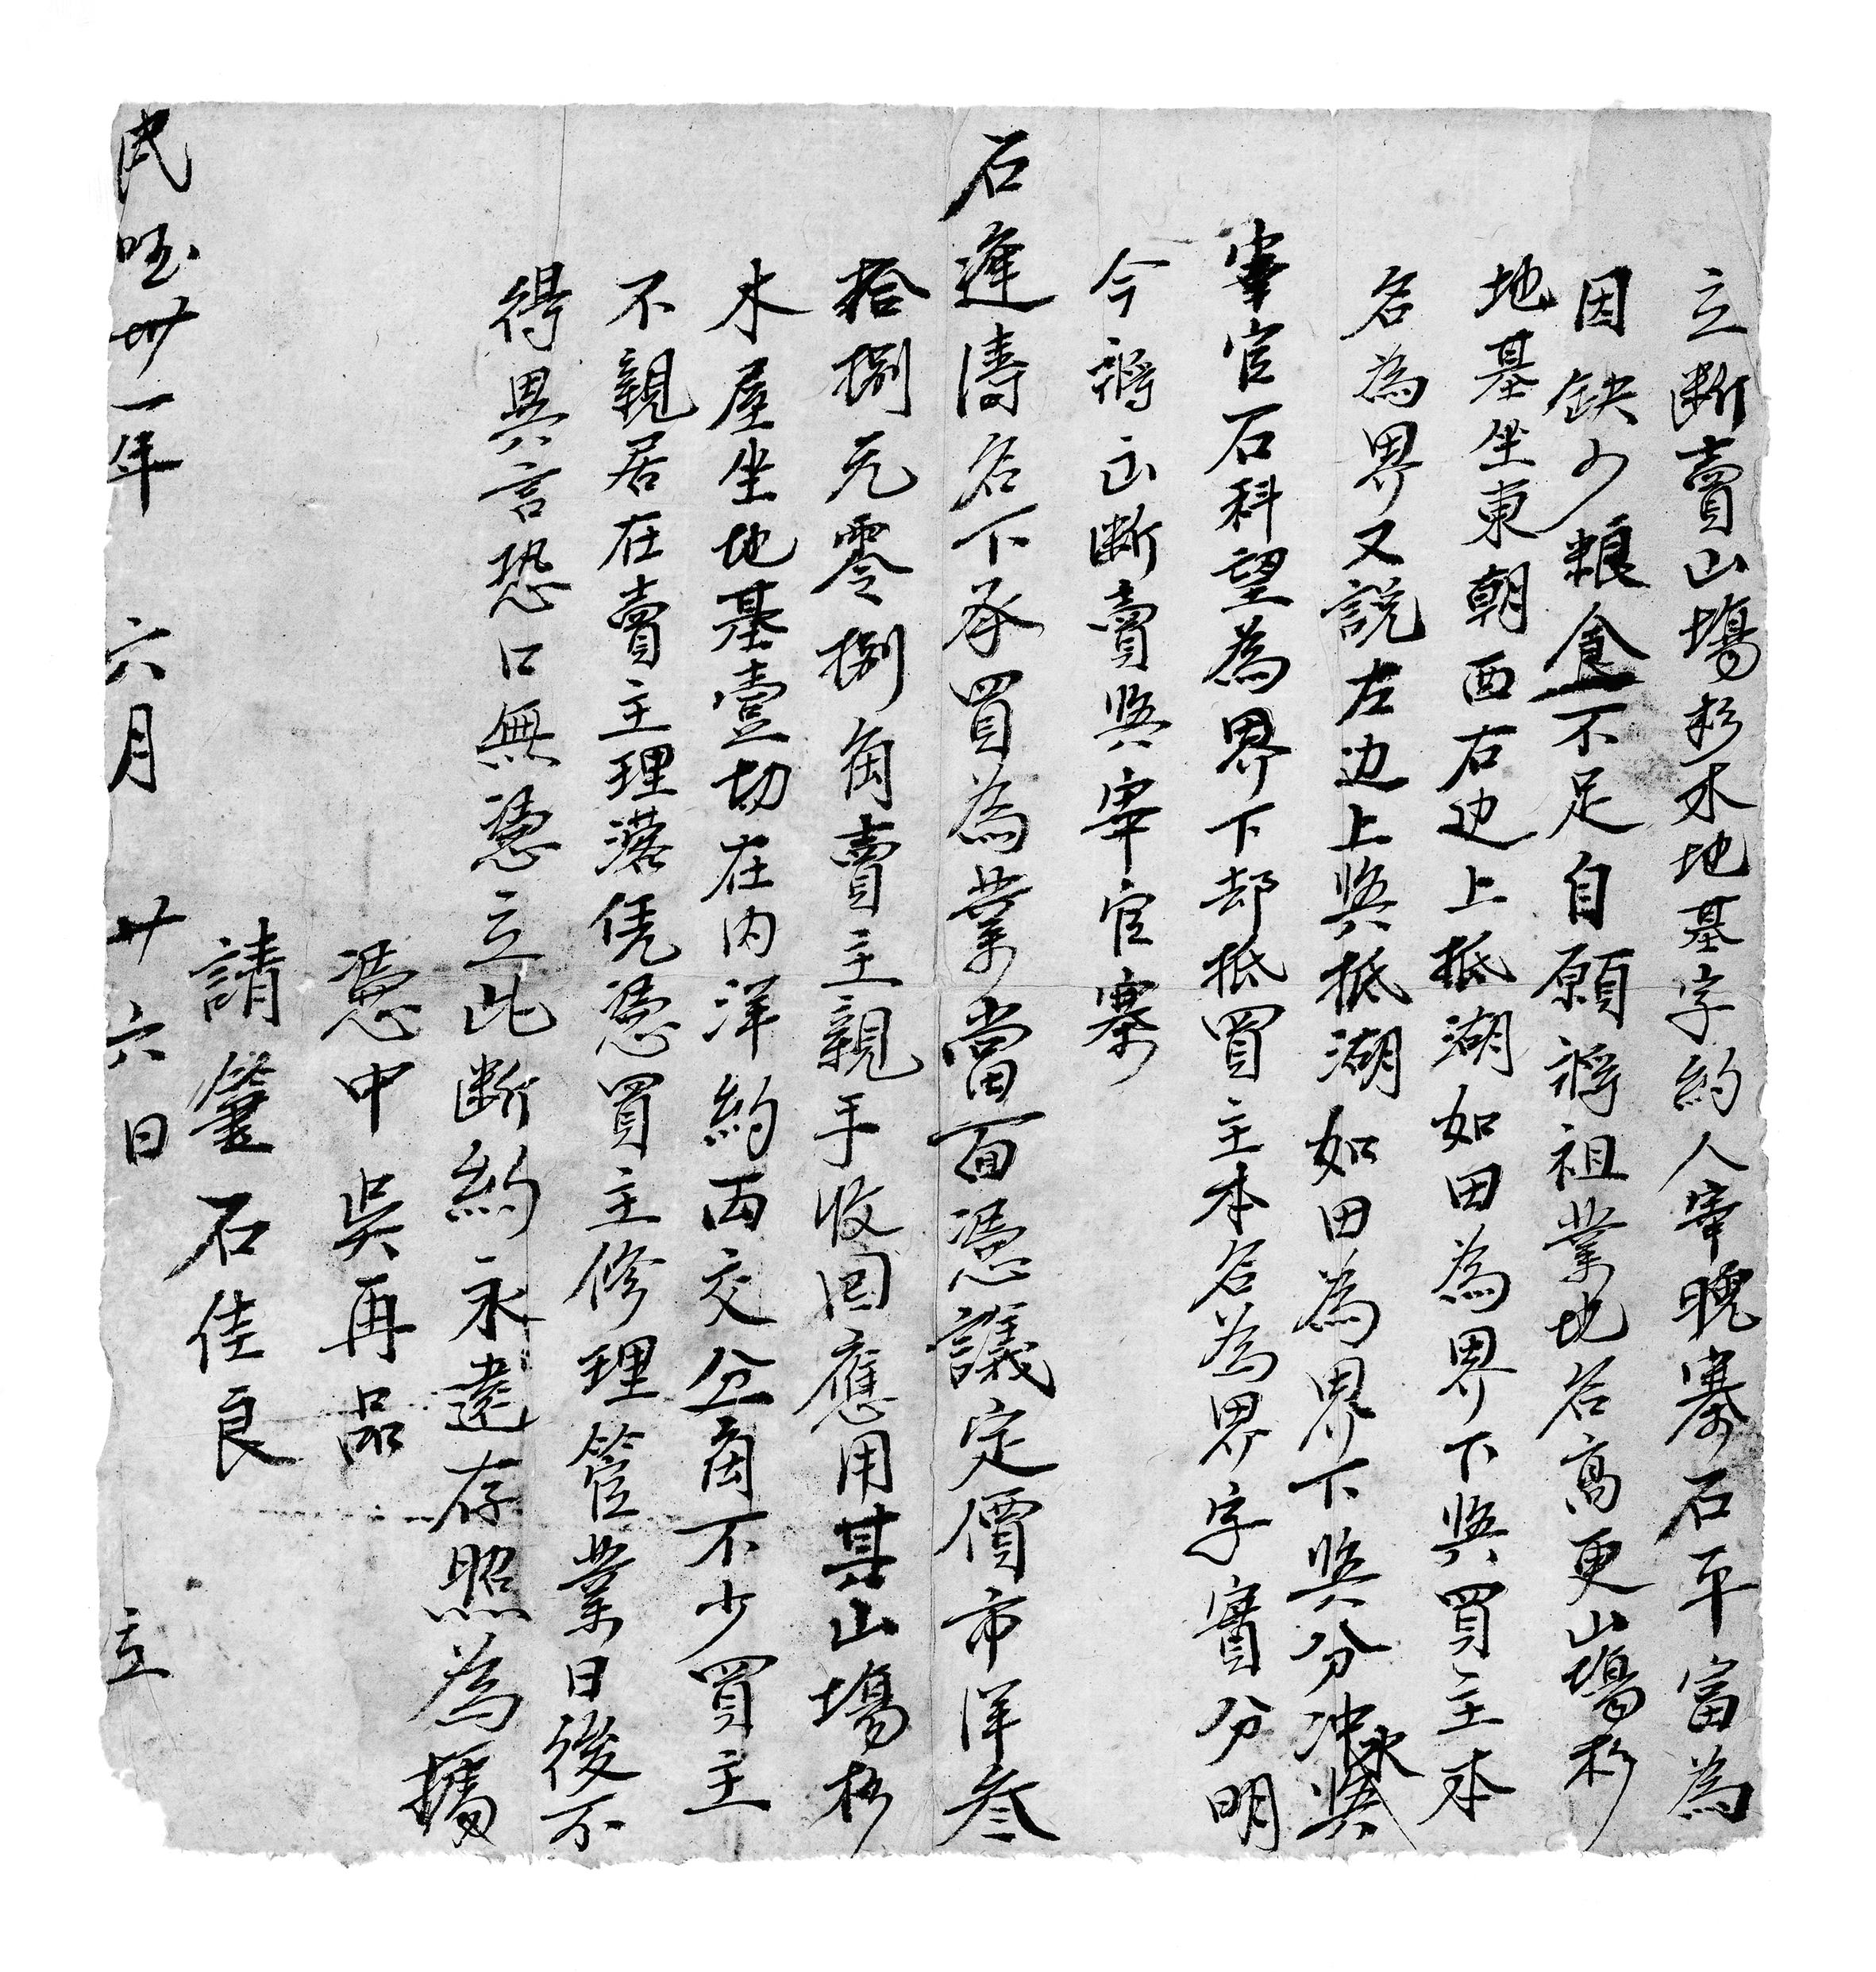 立断賣山塲杉木地基字約人宰曉寨石平富為
因缺少粮食不足自願將祖業地名高更山塲杉
地基坐東朝西右边上抵湖如田為界下與買主本
名為界又説左边上與抵湖如田為界下與分冲水與
宰官石科望為界下却抵買主本名為界字實分明
今將出断賣與宰官寨
石逢濤名下承買為業當面憑議定價市洋叁
拾捌元零捌角賣主親手收回應用其山塲杉
木屋坐地基壹切在內洋約两交分角不少買主
不親居在賣主理落凭憑買主修理管業日後不
得異言恐口無憑立此断約永遠存照為據
憑中 吳再品
請筆 石佳良
民囯卅一年 六月 廿六日 立